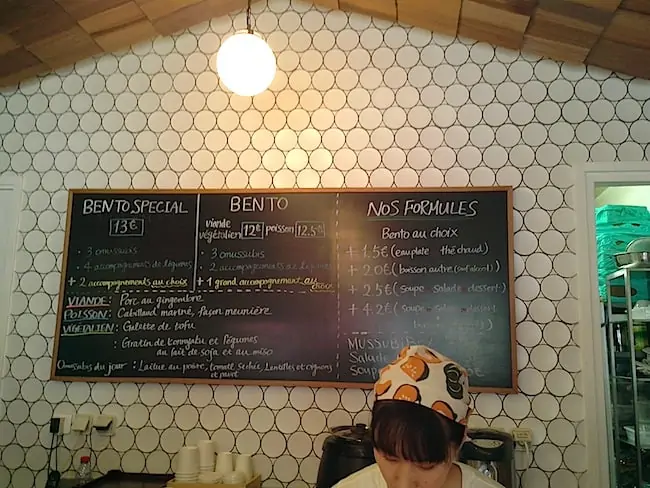 BENTO SPECIAL
13€
· 3 omusubis
· 4 accompagnements de légumes
+ 2 accompagnements au choix
BENTO
viande
végétalien 12€ poisson 12.5€
· 3 omusubis
· 2 accompagnements de légumes
+ 1 grand accompagnement au choix
VIANDE : Porc au gingembre
POISSON : Cabillaud mariné, façon meunière
VÉGÉTALIEN : Galette de tofu
: Gratin de konnyaku et légumes
au lait de soja et au miso
Omusubis du jour : Laitue au poivre, tomate séchée, Lentilles et oignons
NOS FORMULES
Bento au choix
+ 1.5€ (eau plate thé chaud)
+ 2.0€ (boisson autre (sauf alcool))
+ 2.5€ (soupe salade dessert)
+ 4.2€ (soupe salade dessert
MUSSUBI
Salade
Soup